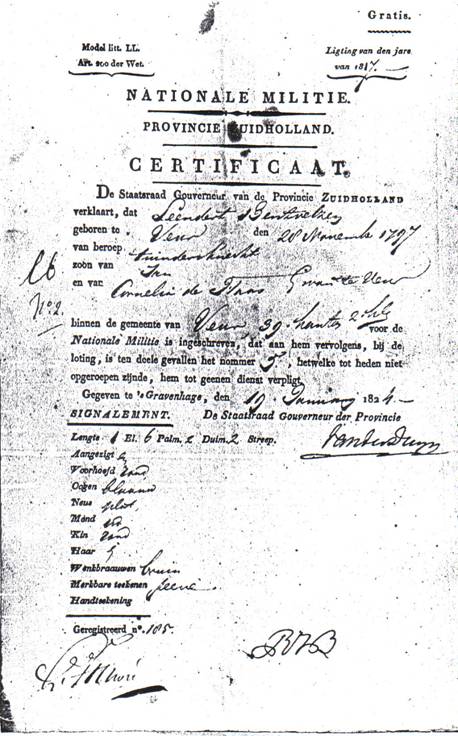 Gratis.
Model litt. LL.
Art. 200 der Wet.
Ligting van den jare
van 1817.
NATIONALE MILITIE.
PROVINCIE ZUIDHOLLAND.
CERTIFICAAT.
De Staatsraad Gouverneur van de Provincie ZUIDHOLLAND
verklaart, dat Leendert
geboren te Veur den 28 November 1797
van beroep tuindersknecht
zoon van Jan
en van Cornelia de Haas
No. 2.
binnen de gemeente van Veur, 39 voor de
Nationale Militie is ingeschreven, dat aan hem vervolgens, bij de
loting, is ten deele gevallen het nommer 5, hetwelke tot heden niet
opgeroepen zijnde, hem tot geenen dienst verpligt.
Gegeven te 's Gravenhage, den 19 January 1824
SIGNALEMENT.
De Staatsraad Gouverneur der Provincie
Lengte 1 El. 6 Palm. 2 Duim. 2 Streep.
Aangezigt
Voorhoofd rond
Oogen blaauw
Neus plat
Mond
Kin rond
Haar
Wenkbraauwen bruin
Merkbare teekenen geene
Handteekening
Geregistreerd no. 185.